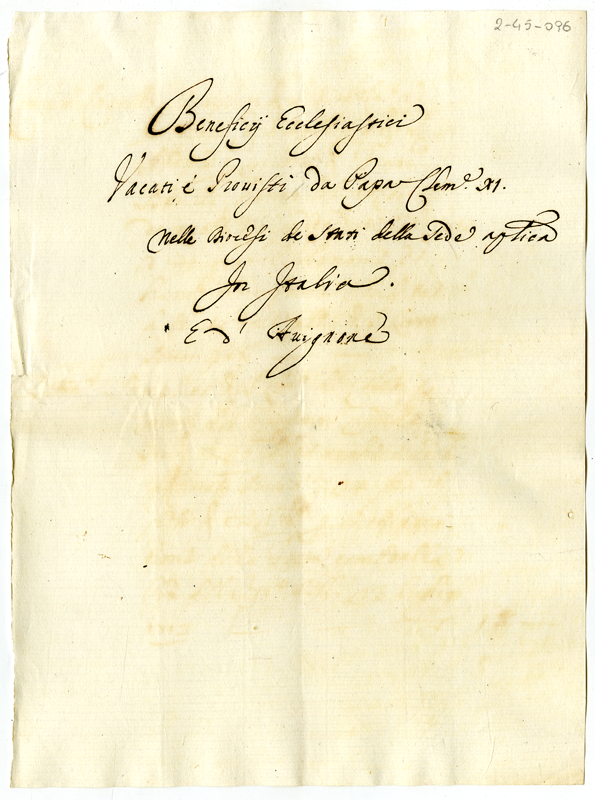 2-45-096
Beneficij Ecclesiastici
Vacati é Provisti, da Papa Clem.e XI.
Nelle Diocesi de Stati della Sede aplica
In Italia.
E d' Avignone